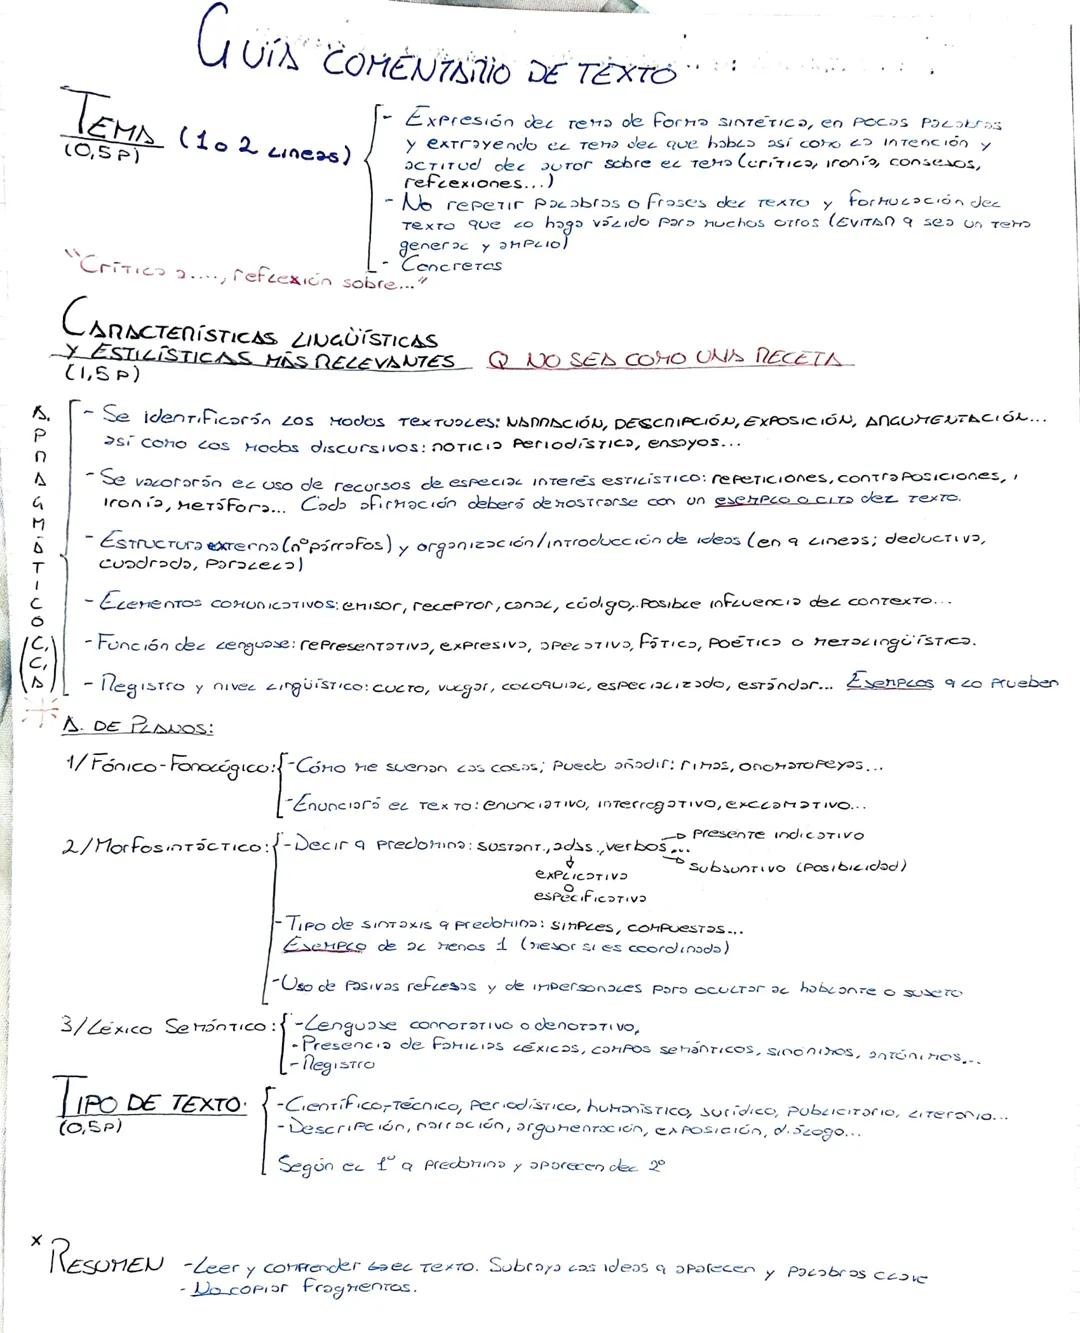 GUÍA COMENTARIO DE TEXTO
TEMA (1 o 2 líneas)
(0,5 P)
- Expresión del tema de forma sintética, en pocas palabras
y extrayendo el tema del que habla así como la intención y
actitud del autor sobre el tema (crítica, ironía, consejos,
reflexiones...)
- No repetir palabras o frases del texto y formulación del
texto que lo haga válido para muchos otros (EVITAR q sea un tema
general y amplio)
- Concretas
"Crítica a...., reflexión sobre..."
CARACTERÍSTICAS LINGÜÍSTICAS
Y ESTILÍSTICAS MÁS RELEVANTES Q NO SEA COMO UNA RECETA
(1,5 P)
A. PRAGMÁTICO (C.C.A)
- Se identificarán los modos textuales: NARRACIÓN, DESCRIPCIÓN, EXPOSICIÓN, ARGUMENTACIÓN...
así como los modos discursivos: noticia periodística, ensayos...
- Se valorarán el uso de recursos de especial interés estilístico: repeticiones, contraposiciones,
ironía, metáfora... Cada afirmación deberá demostrarse con un ejemplo o cita del texto.
- Estructura externa (nº párrafos) y organización/introducción de ideas (en q líneas; deductiva,
cuadrada, paralela)
- Elementos comunicativos: emisor, receptor, canal, código, posible influencia del contexto...
- Función del lenguaje: representativa, expresiva, apelativa, fática, poética o metalingüística.
- Registro y nivel lingüístico: culto, vulgar, coloquial, especializado, estándar... Ejemplos q lo prueben
A. DE PLANOS:
1/ Fónico-Fonológico: - Cómo me suenan las cosas; puedo añadir: rimas, onomatopeyas...
- Enunciará el texto: enunciativo, interrogativo, exclamativo...
2/ Morfosintáctico: - Decir q predomina: sustant., adjs., verbos...
presente indicativo
subjuntivo (posibilidad)
explicativo
o
especificativo
- Tipo de sintaxis q predomina: simples, compuestas...
Ejemplo de al menos 1 (mejor si es coordinada)
- Uso de pasivas reflejas y de impersonales para ocultar al hablante o sujeto
3/ Léxico Semántico: - Lenguaje connotativo o denotativo,
- Presencia de familias léxicas, campos semánticos, sinónimos, antónimos...
- Registro
TIPO DE TEXTO.
(0,5P)
- Científico-técnico, periodístico, humanístico, jurídico, publicitario, literario...
- Descripción, narración, argumentación, exposición, diálogo...
Según el 1º q predomina y aparecen del 2º
x RESUMEN - Leer y comprender el texto. Subraya las ideas q aparecen y palabras clave
- No copiar fragmentos.